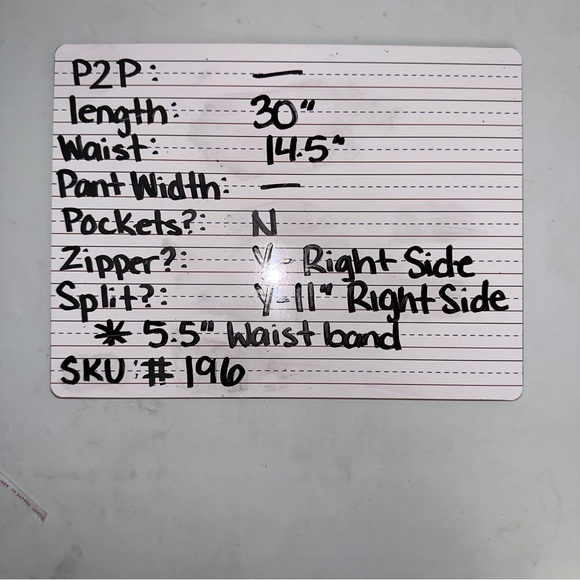 P2P: —
length: 30"
Waist: 14.5"
Pant Width: —
Pockets?: N
Zipper?: Y- Right Side
Split?: Y-11" Right Side
* 5.5" Waist band
SKU: # 196